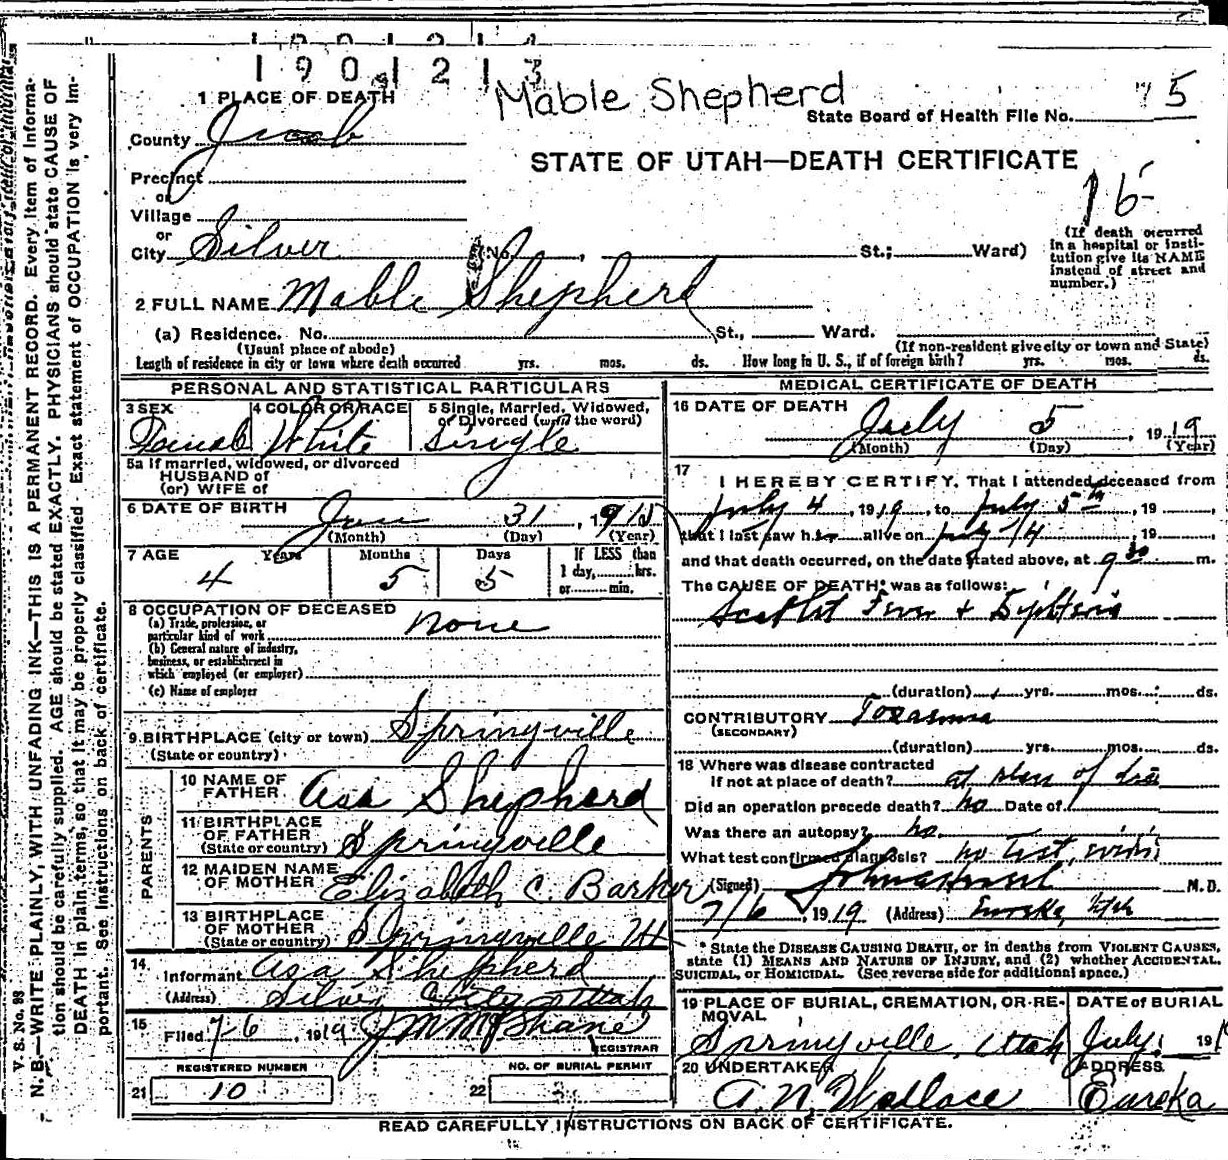 1901213
Mable Shepherd
5
State Board of Health File No.
STATE OF UTAH—DEATH CERTIFICATE
16
1 PLACE OF DEATH
County Juab
Precinct
or
Village
or
City Silver No. St.; Ward)
(If death occurred in a hospital or institution give its NAME instead of street and number.)
2 FULL NAME Mable Shepherd
(a) Residence. No. St., Ward.
(Usual place of abode) (If non-resident give city or town and State)
Length of residence in city or town where death occurred yrs. mos. ds. How long in U. S., if of foreign birth? yrs. mos. ds.
PERSONAL AND STATISTICAL PARTICULARS
3 SEX 4 COLOR OR RACE 5 Single, Married, Widowed, or Divorced (write the word)
Female White Single
5a If married, widowed, or divorced
HUSBAND of
(or) WIFE of
6 DATE OF BIRTH Jan 31, 1915
(Month) (Day) (Year)
7 AGE Years Months Days If LESS than
4 5 5 1 day, hrs.
or min.
8 OCCUPATION OF DECEASED
(a) Trade, profession, or
particular kind of work None
(b) General nature of industry,
business, or establishment in
which employed (or employer)
(c) Name of employer
9. BIRTHPLACE (city or town) Springville
(State or country)
PARENTS
10 NAME OF FATHER Asa Shepherd
11 BIRTHPLACE OF FATHER Springville
(State or country)
12 MAIDEN NAME OF MOTHER Elizabeth C. Barker
13 BIRTHPLACE OF MOTHER Springville Ut
(State or country)
14. Informant Asa Shepherd
(Address) Silver City Utah
15 Filed 7-6, 1919 J M McShane
REGISTRAR
REGISTERED NUMBER NO. OF BURIAL PERMIT
21 10 22
MEDICAL CERTIFICATE OF DEATH
16 DATE OF DEATH July 5, 1919
(Month) (Day) (Year)
17
I HEREBY CERTIFY, That I attended deceased from
July 4, 1919, to July 5th, 19
that I last saw her alive on July 4, 19
and that death occurred, on the date stated above, at 9 30 m.
The CAUSE OF DEATH* was as follows:
Scarlet Fever +
(duration) yrs. mos. ds.
CONTRIBUTORY
(SECONDARY)
(duration) yrs. mos. ds.
18 Where was disease contracted
if not at place of death? at place of
Did an operation precede death? no Date of
Was there an autopsy? no
What test confirmed diagnosis? no test
(Signed) M.D.
7/6, 1919 (Address) Eureka, Utah
* State the DISEASE CAUSING DEATH, or in deaths from VIOLENT CAUSES, state (1) MEANS AND NATURE OF INJURY, and (2) whether ACCIDENTAL, SUICIDAL, or HOMICIDAL. (See reverse side for additional space.)
19 PLACE OF BURIAL, CREMATION, OR REMOVAL DATE of BURIAL
Springville, Utah July 191
20 UNDERTAKER ADDRESS
A. N. Wallace Eureka
READ CAREFULLY INSTRUCTIONS ON BACK OF CERTIFICATE.
V. S. No. 98
N. B.—WRITE PLAINLY, WITH UNFADING INK—THIS IS A PERMANENT RECORD. Every item of information should be carefully supplied. AGE should be stated EXACTLY. PHYSICIANS should state CAUSE OF DEATH in plain terms, so that it may be properly classified. Exact statement of OCCUPATION is very important. See instructions on back of certificate.